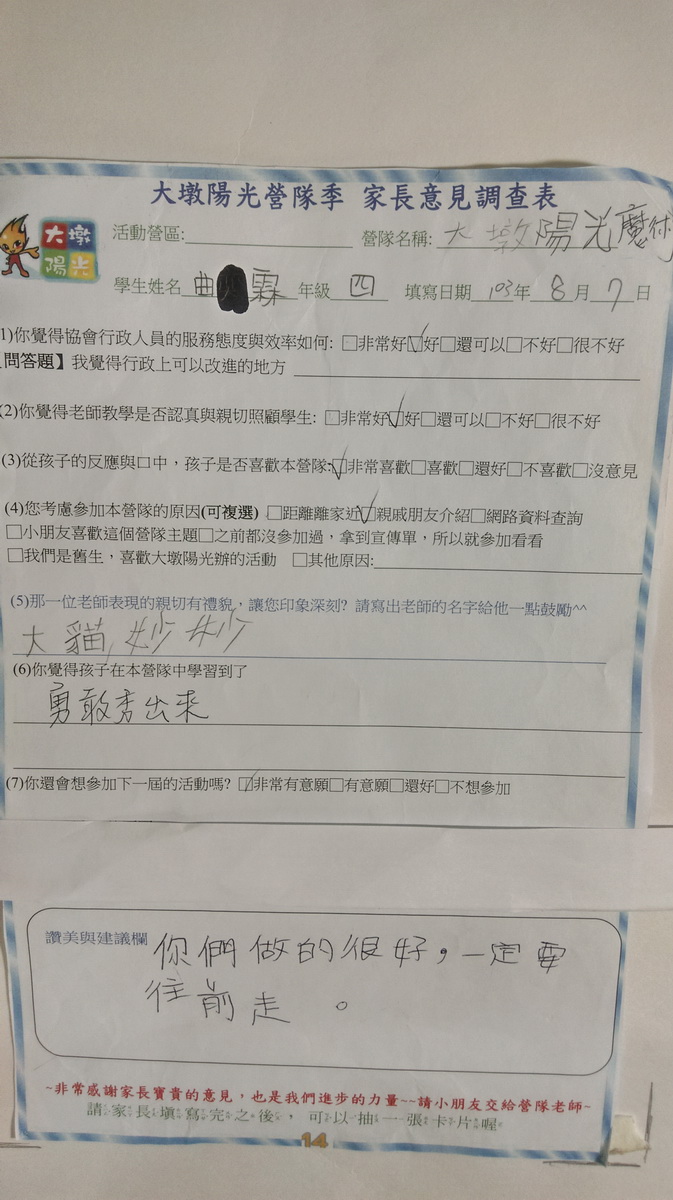 大墩陽光營隊季 家長意見調查表
大墩
陽光
活動營區: 營隊名稱: 大墩陽光魔術
學生姓名 曲霖 年級 四 填寫日期 103年 8月 7日
1)你覺得協會行政人員的服務態度與效率如何: □非常好☑好□還可以□不好□很不好
問答題】我覺得行政上可以改進的地方
(2)你覺得老師教學是否認真與親切照顧學生: □非常好☑好□還可以□不好□很不好
(3)從孩子的反應與口中，孩子是否喜歡本營隊:☑非常喜歡□喜歡□還好□不喜歡□沒意見
(4)您考慮參加本營隊的原因(可複選) □距離離家近☑親戚朋友介紹□網路資料查詢
□小朋友喜歡這個營隊主題□之前都沒參加過，拿到宣傳單，所以就參加看看
□我們是舊生，喜歡大墩陽光辦的活動 □其他原因:
(5)那一位老師表現的親切有禮貌，讓您印象深刻? 請寫出老師的名字給他一點鼓勵^^
大貓,妙妙
(6)你覺得孩子在本營隊中學習到了
勇敢秀出來
(7)你還會想參加下一屆的活動嗎? ☑非常有意願□有意願□還好□不想參加
讚美與建議欄
你們做的很好，一定要
往前走。
~非常感謝家長寶貴的意見，也是我們進步的力量~~請小朋友交給營隊老師~
請家長填寫完之後，可以抽一張卡片喔
14